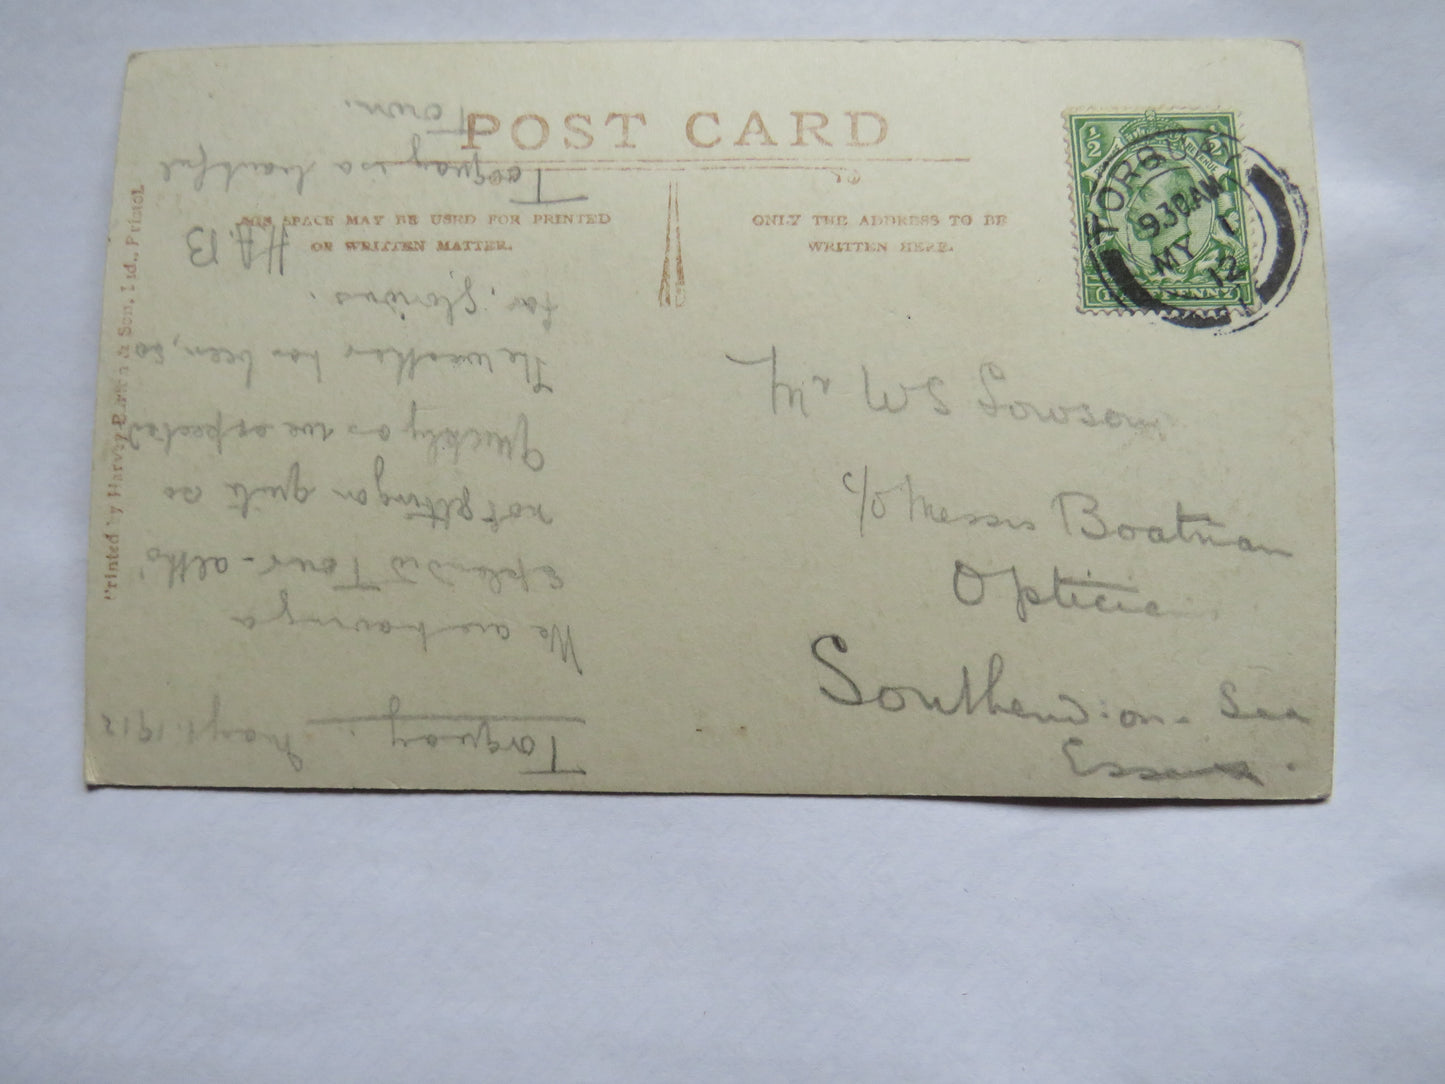 POST CARD
THIS SPACE MAY BE USED FOR PRINTED
OR WRITTEN MATTER.
ONLY THE ADDRESS TO BE
WRITTEN HERE.
½ ½
HALFPENNY
TORQUAY
9.30 AM
MY 1
12
Mr W S Lowson
c/o Messrs Boatman
Optician
Southend-on-Sea
Essex.
Torquay. May 1. 1912
We are having a
splendid Tour - altho'
not getting on quite so
quickly as we expected
The weather has been, so
far, glorious.
H.A.B
Torquay is a beautiful
Town.
Printed by Harvey Barton & Son, Ltd., Bristol.